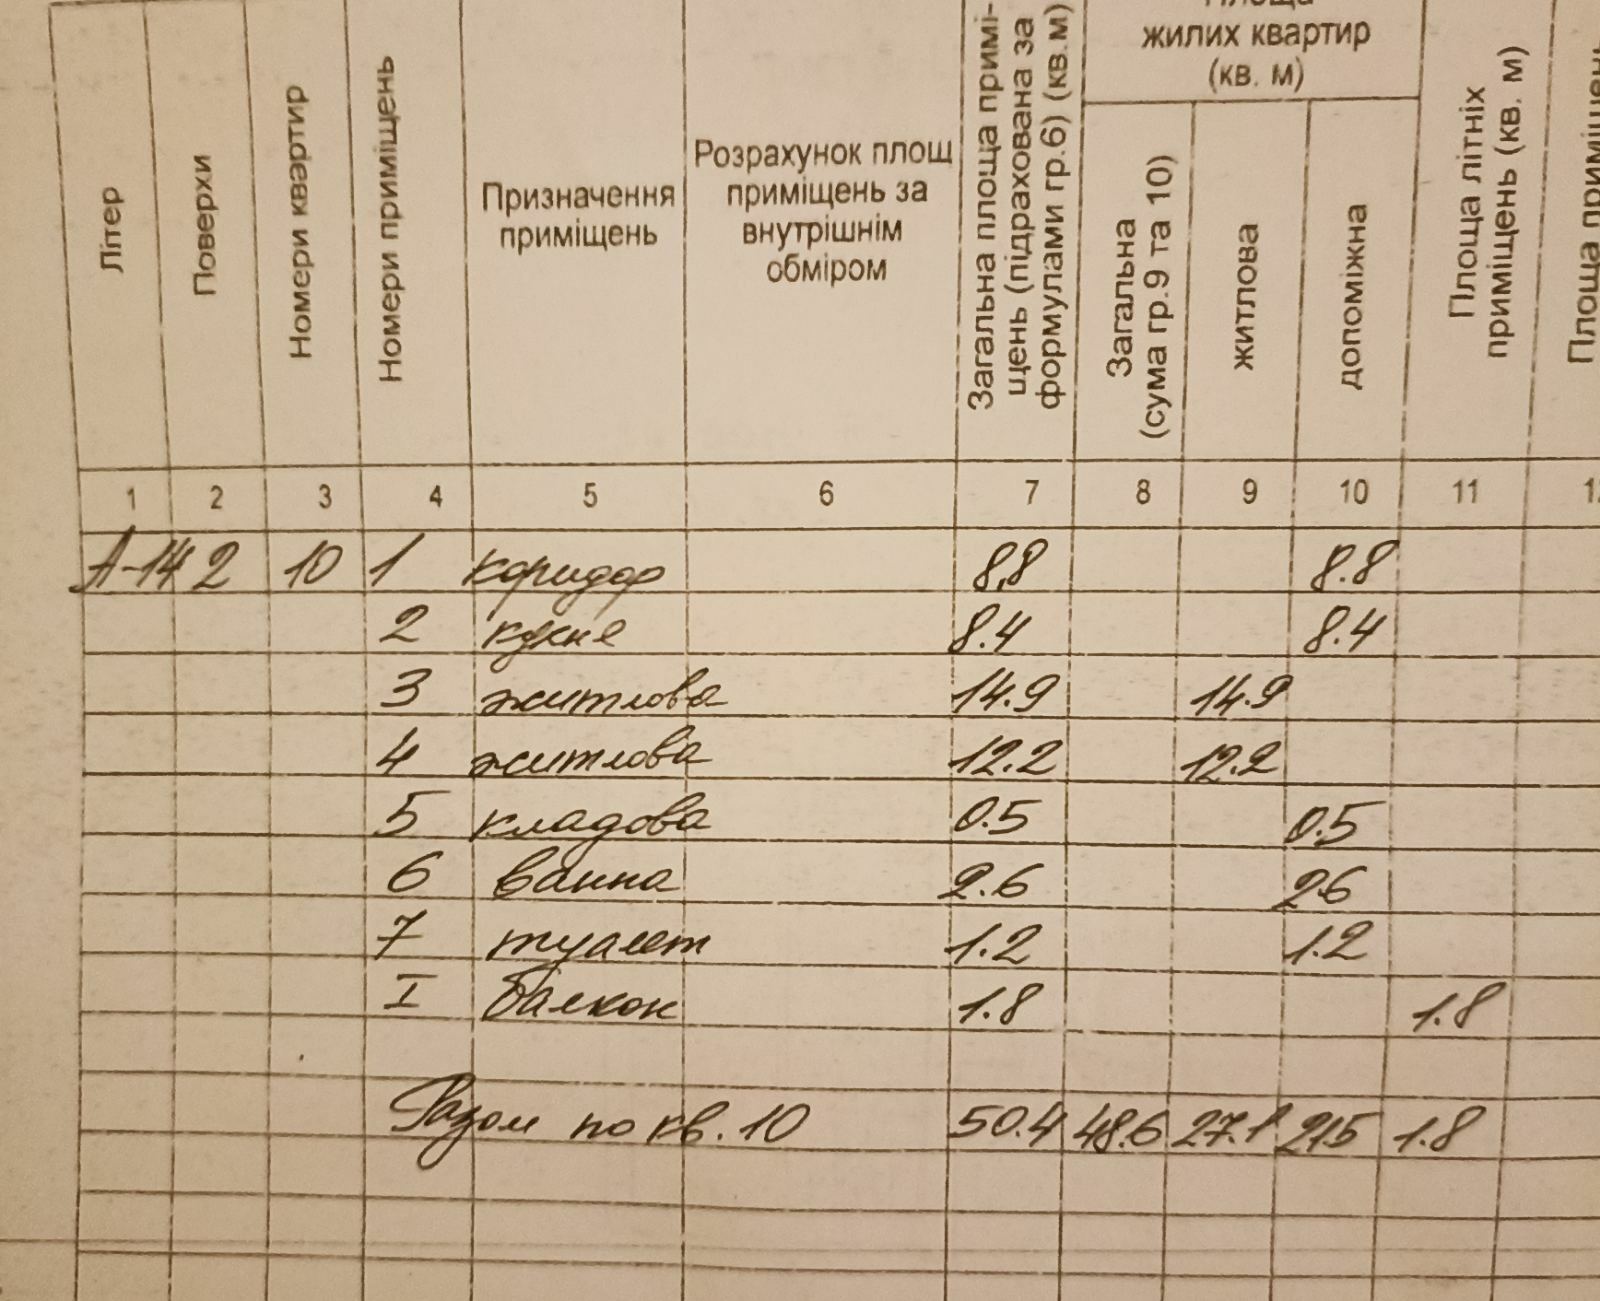 Площа
жилих квартир
(кв. м)
Літер
Поверхи
Номери квартир
Номери приміщень
Призначення
приміщень
Розрахунок площ
приміщень за
внутрішнім
обміром
Загальна площа примі-
щень (підрахована за
формулами гр.6) (кв.м)
Загальна
(сума гр.9 та 10)
житлова
допоміжна
Площа літніх
приміщень (кв. м)
Площа приміщень
1 2 3 4 5 6 7 8 9 10 11
А-14 2 10 1 коридор 8,8 8.8
2 кухня 8.4 8.4
3 житлова 14.9 14.9
4 житлова 12.2 12.2
5 кладова 0.5 0.5
6 ванна 2.6 2.6
7 туалет 1.2 1.2
I балкон 1.8 1.8
Разом по кв. 10 50.4 48.6 27.1 21.5 1.8